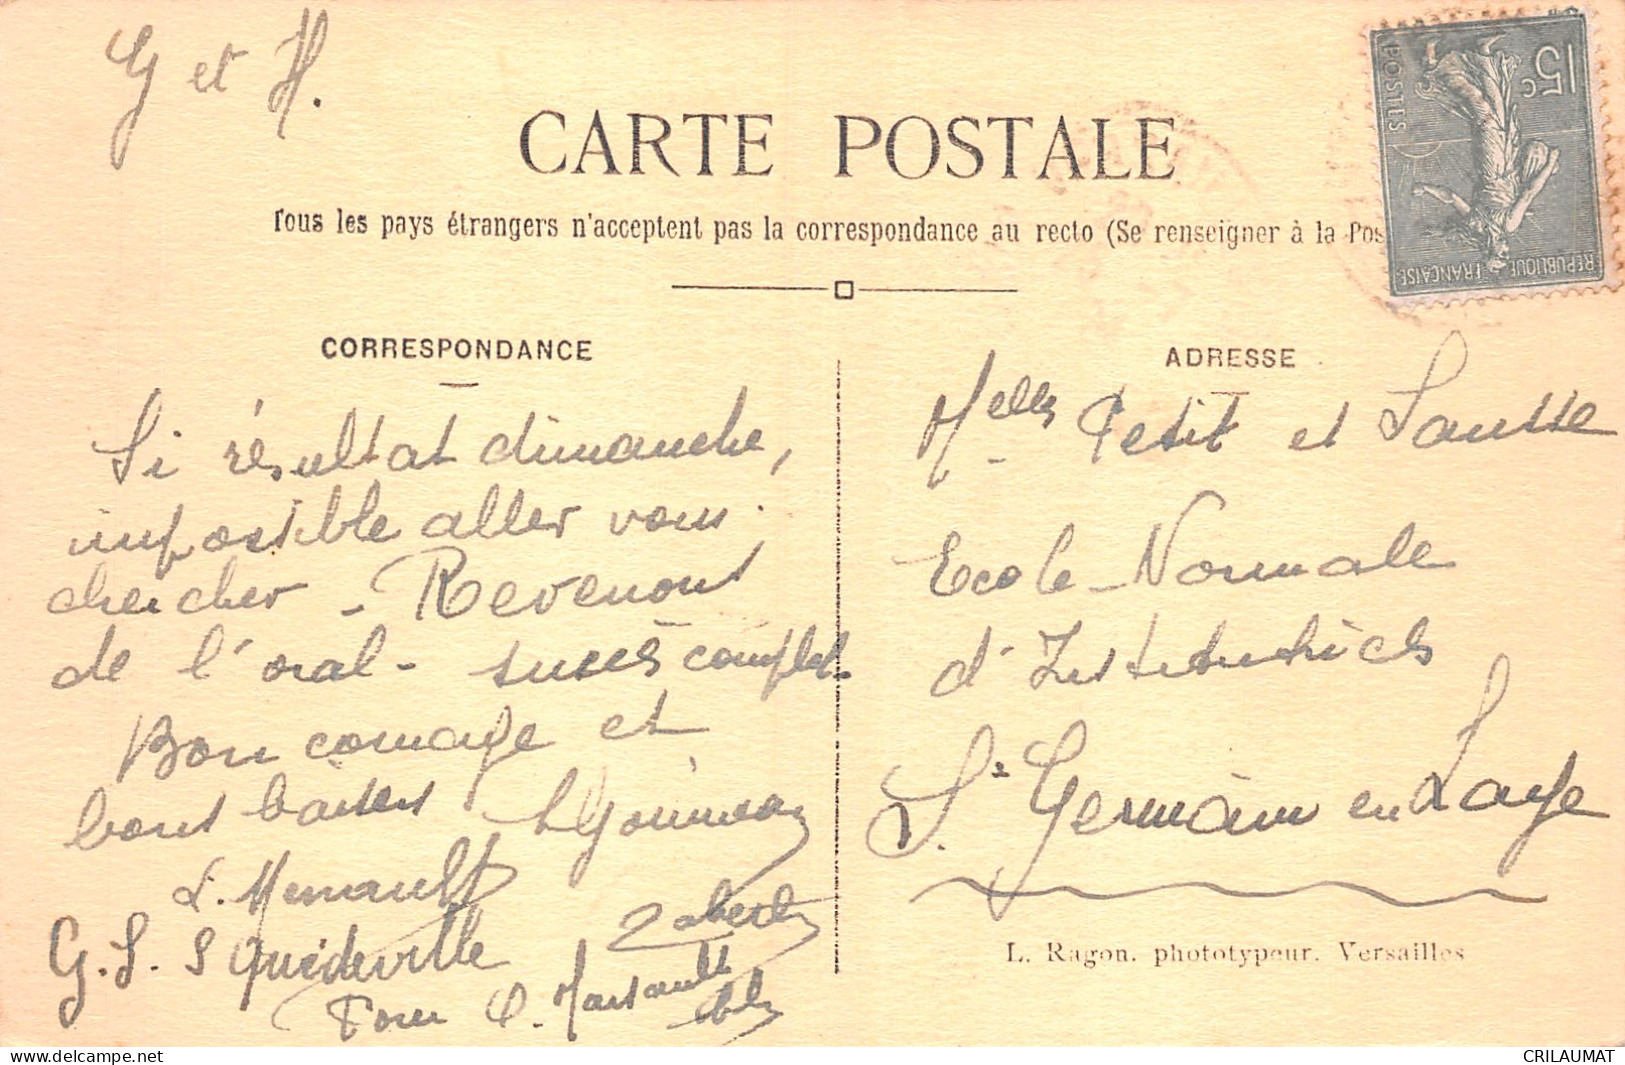 G et H.
CARTE POSTALE
Tous les pays étrangers n'acceptent pas la correspondance au recto (Se renseigner à la Pos
15c
POSTES
REPUBLIQUE FRANÇAISE
CORRESPONDANCE
Si résultat dimanche,
impossible aller vous
chercher - Revenons
de l'oral - succès complet.
Bon courage et
bons baisers
G. S.
Pour
ADRESSE
Melles Petit et Sausse
Ecole Normale
d'Institutrices
St Germain en Laye
L. Ragon, phototypeur, Versailles
delcampe.net
CRILAUMAT